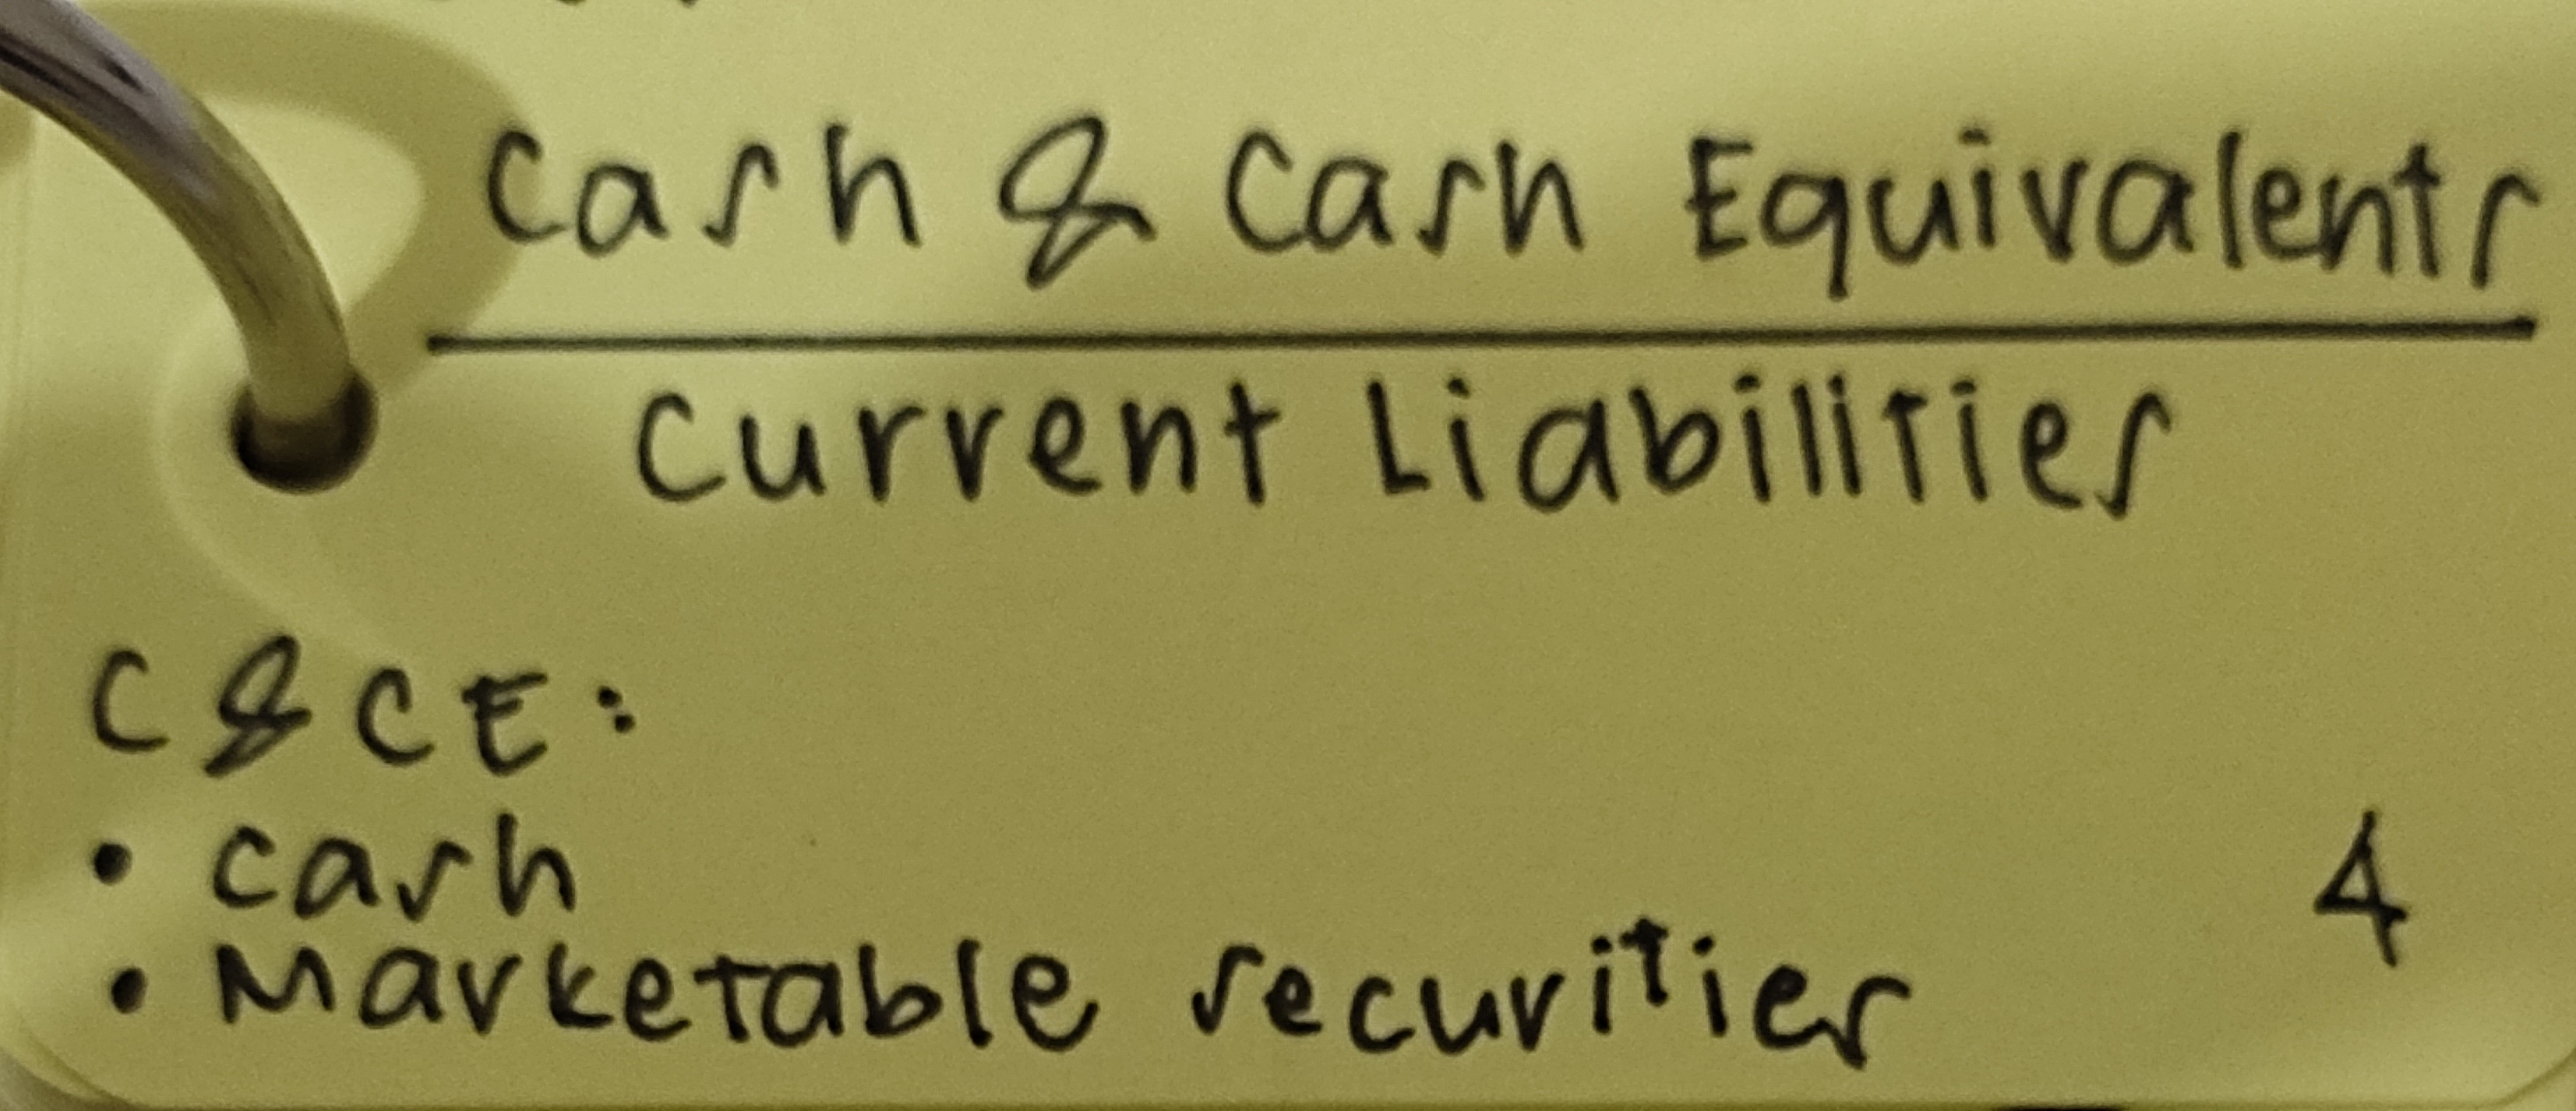 Cash & Cash Equivalents
Current Liabilities
C & CE:
• cash
• Marketable securities
4